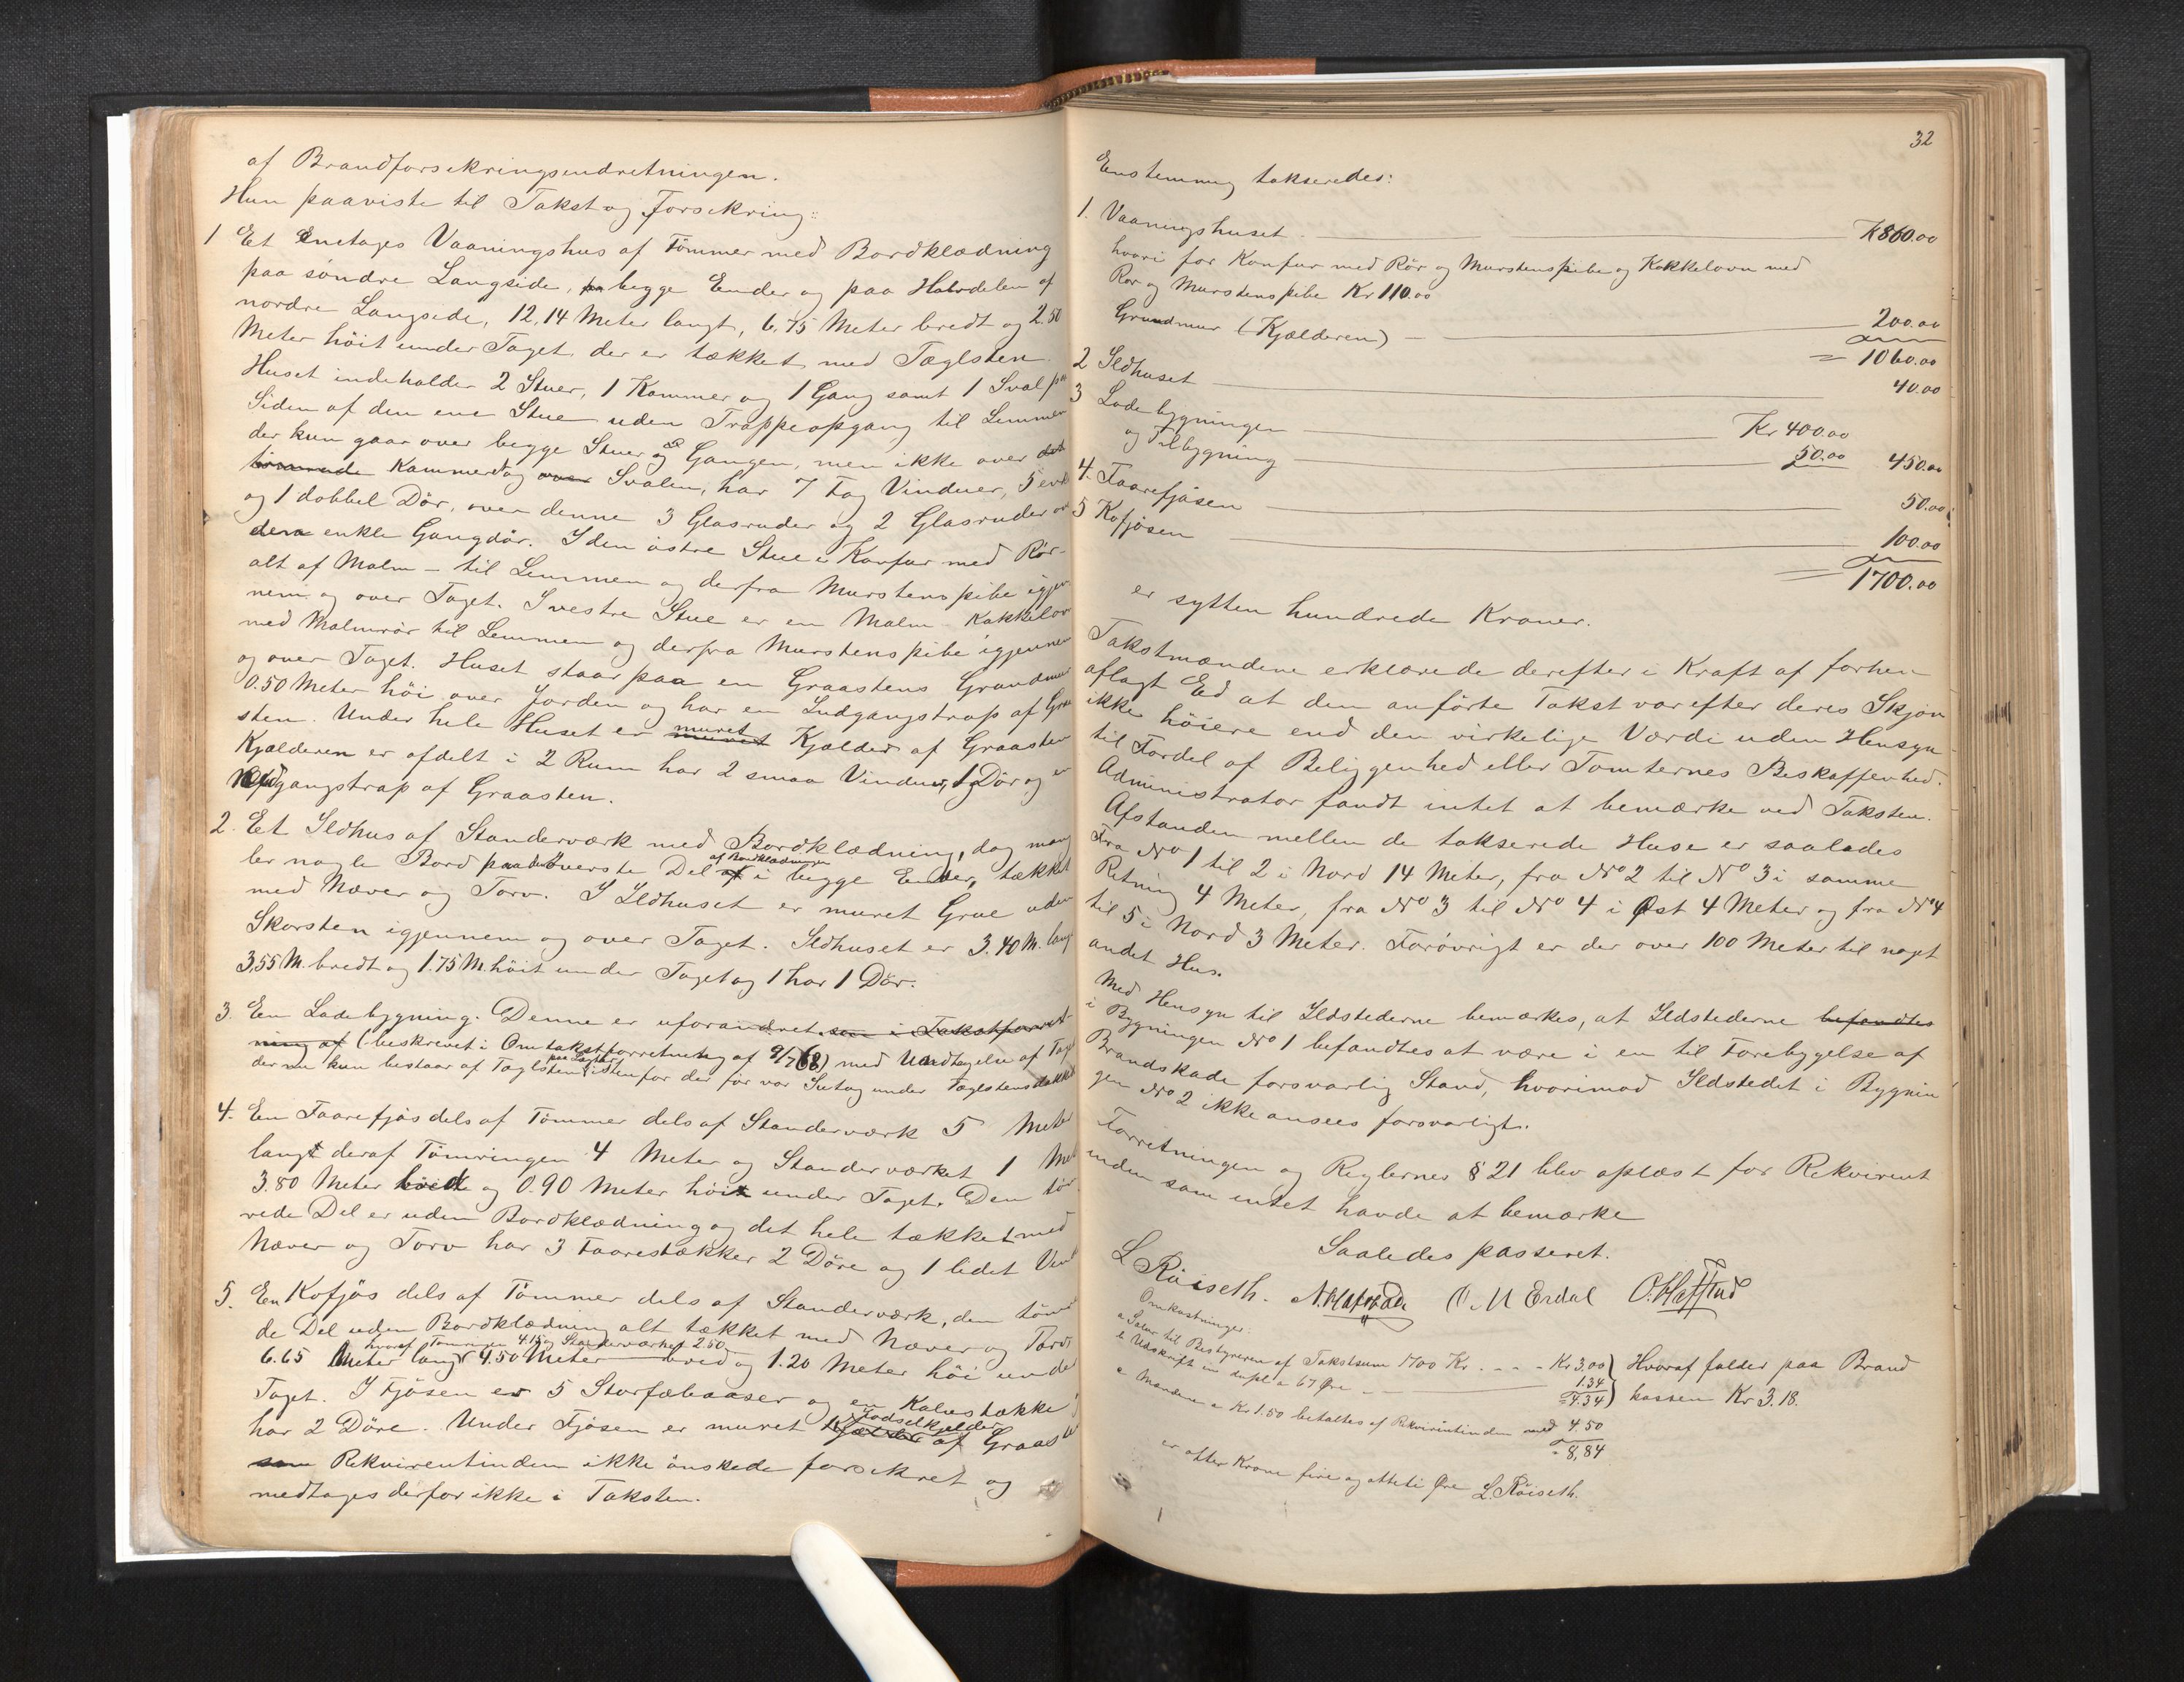 af Brandforsikringsindretningen.
Hun paaviste til Takst og Forsikring:
1 Et Enetages Vaaningshus af Tömmer med Bordklædning
paa söndre Langside, paa begge Ender og paa Halvdelen af
nordre Langside, 12.14 Meter langt, 6.75 Meter bredt og 2.50
Meter höit under Taget der er tækket med Taglsten.
Huset indeholder 2 Stuer, 1 Kammer og 1 Gang samt 1 Sval paa
Siden af den ene Stue uden Trappeopgang til Lemmen
der kun gaar over begge Stuer og Gangen, men ikke over det
Kammer og over Svalen, har 7 Fag Vinduer, 5
og 1 dobbel Dör, over denne 3 Glasruder og 2 Glasruder
den enkle Gangdör. I den östre Stue er Komfur med Rör-
alt af Malm - til Lemmen og derfra Murstenspibe igjen-
nem og over Taget. I vestre Stue er en Malm Kakkelovn
med Malmrör til Lemmen og derfra Murstenspibe igjennem
og over Taget. Huset staar paa en Graastens Grundmur
0.50 Meter höi over Jorden og har en Indgangstrap af Graa-
sten. Under hele Huset er muret muret Kjælder af Graasten
Kjælderen er afdelt i 2 Rum har 2 smaa Vinduer, 1 Dör og en
Nedgangstrap af Graasten.
2. Et Ildhus af Standerværk med Bordklædning, dog mang-
ler nogle Bord paa överste Del af Bordklædningen i begge Ender, tækket
med Næver og Torv. I Ildhuset er muret Grue uden
Skorsten igjennem og over Taget. Ildhuset er 3.40 M. langt
3,55 M. bredt og 1.75 M. höit under Taget og 1 har 1 Dör.
3. En Ladebygning. Denne er uforandret som i Takstforret-
ning af (beskrevet i Omtakstforretning af 9/7 68) med Undtagelse af Taget
der nu kun bestaar af Taglsten paa Lægter istenfor der för var Sutag under Taglstenstækket
4. En Faarefjös dels af Tömmer dels af Standerværk 5 Meter
langt deraf Tömringen 4 Meter og Standerværket 1 Meter
3.80 Meter bredt og 0.90 Meter höit under Taget. Den töm-
rede Del er uden Bordklædning og det hele tækket med
Næver og Torv har 3 Faarestækker 2 Döre og 1 lidet Vindu
5. En Kofjös dels af Tömmer dels af Standerværk, den tömre-
de Del uden Bordklædning alt tækket med Næver og Torv
hvoraf Tömringen 4.15 og Standerværket 2.50
6.65 Meter lang 4.50 Meter bred og 1.20 Meter höi under
Taget. I Fjösen er 5 Storfæbaaser og en Kalvestække
har 2 Döre. Under Fjösen er muret Kjælder Gjödselkjelder af Graasten
som Rekvirentinden ikke önskede forsikret og
medtages derfor ikke i Taksten.
32
Enstemmig takseredes:
1. Vaaningshuset K 860.00
hvori for Komfur med Rör og Murstenspibe og Kakkelovn med
Rör og Murstenspibe Kr 110.00
Grundmur (Kjælderen) 200.00
= 1060.00
2 Ildhuset 40.00
3 Ladebygningen Kr 400.00
og Tilbygning 50.00 450.00
4. Faarefjösen 50.00
5 Kofjösen 100.00
= 1700.00
er sytten hundrede Kroner.
Takstmændene erklærede derefter i Kraft af forhen
aflagt Ed at den anförte Takst var efter deres Skjön
ikke höiere end den virkelige Værdi uden Hensyn
til Fordel af Beliggenhed eller Tomternes Beskaffenhed.
Administrator fandt intet at bemærke ved Taksten.
Afstanden mellem de takserede Huse er saaledes
Fra No 1 til 2 i Nord 14 Meter, fra No 2 til No 3 i samme
Retning 4 Meter, fra No 3 til No 4 i Øst 4 Meter og fra No 4
til 5 i Nord 3 Meter. Forövrigt er der over 100 Meter til noget
andet Hus.
Med Hensyn til Ildstederne bemærkes, at Ildstederne befandtes
i Bygningen No 1 befandtes at være i en til Forebyggelse af
Brandskade forsvarlig Stand, hvorimod Ildstedet i Bygnin-
gen No 2 ikke ansees forsvarligt.
Forretningen og Reglernes § 21 blev oplæst for Rekvirent-
inden som intet havde at bemærke
Saaledes passeret.
L Röiseth. O M Erdal
Omkostninger:
a Salær til Bestyreren af Takstsum 1700 Kr. - - - Kr 3.00 } Hvoraf falder paa Brand
b Udskrift in dupl. a 67 Øre 1.34
= 4.34 } kassen Kr 3.18.
c Mændene a Kr 1.50 betaltes af Rekvirentinden med 4.50
= 8,84
er otte Krone fire og otteti Øre L. Röiseth.